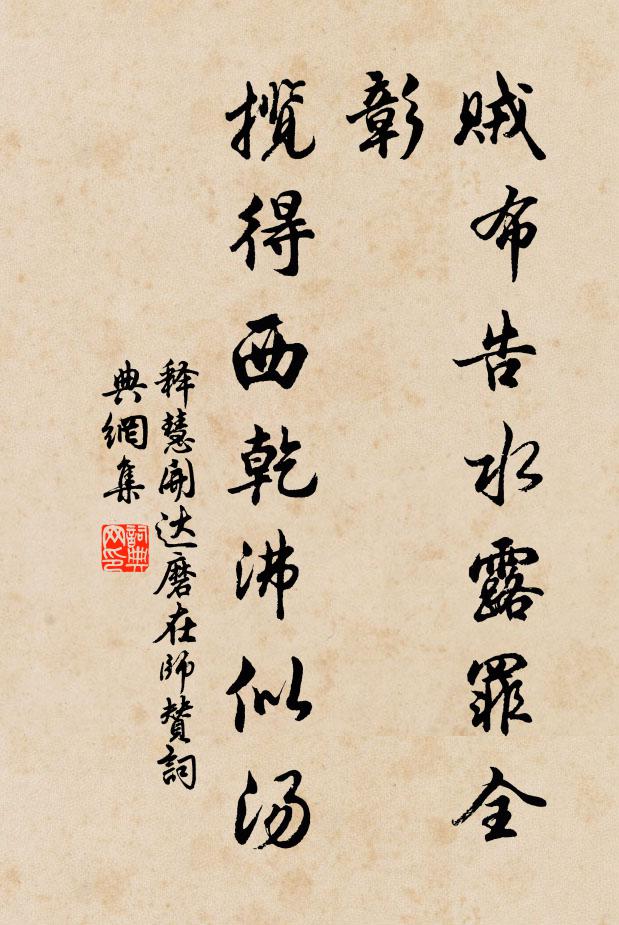 贼布告水露罪全
彰
揽得西乾沸似汤
释慧开达磨在师赞词
典網集
詞典
网印